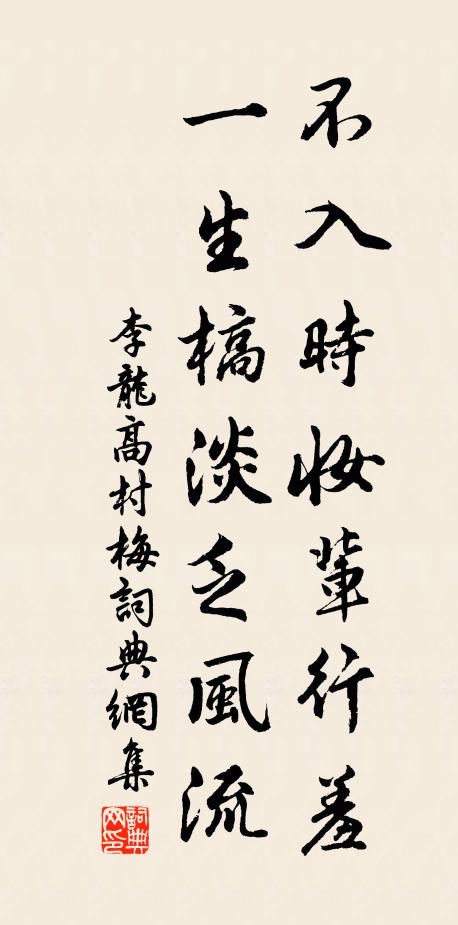 不入時妝輩行羞
一生槁淡乏風流
李龍高村梅詞典網集
詞典网印